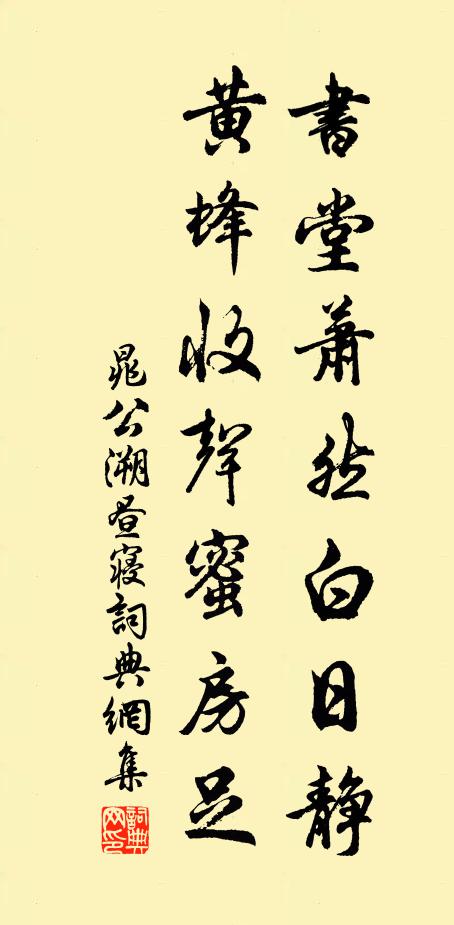 書堂蕭然白日靜
黄蜂收聲蜜房足
晁公溯昼寢詞典網集
詞典網印